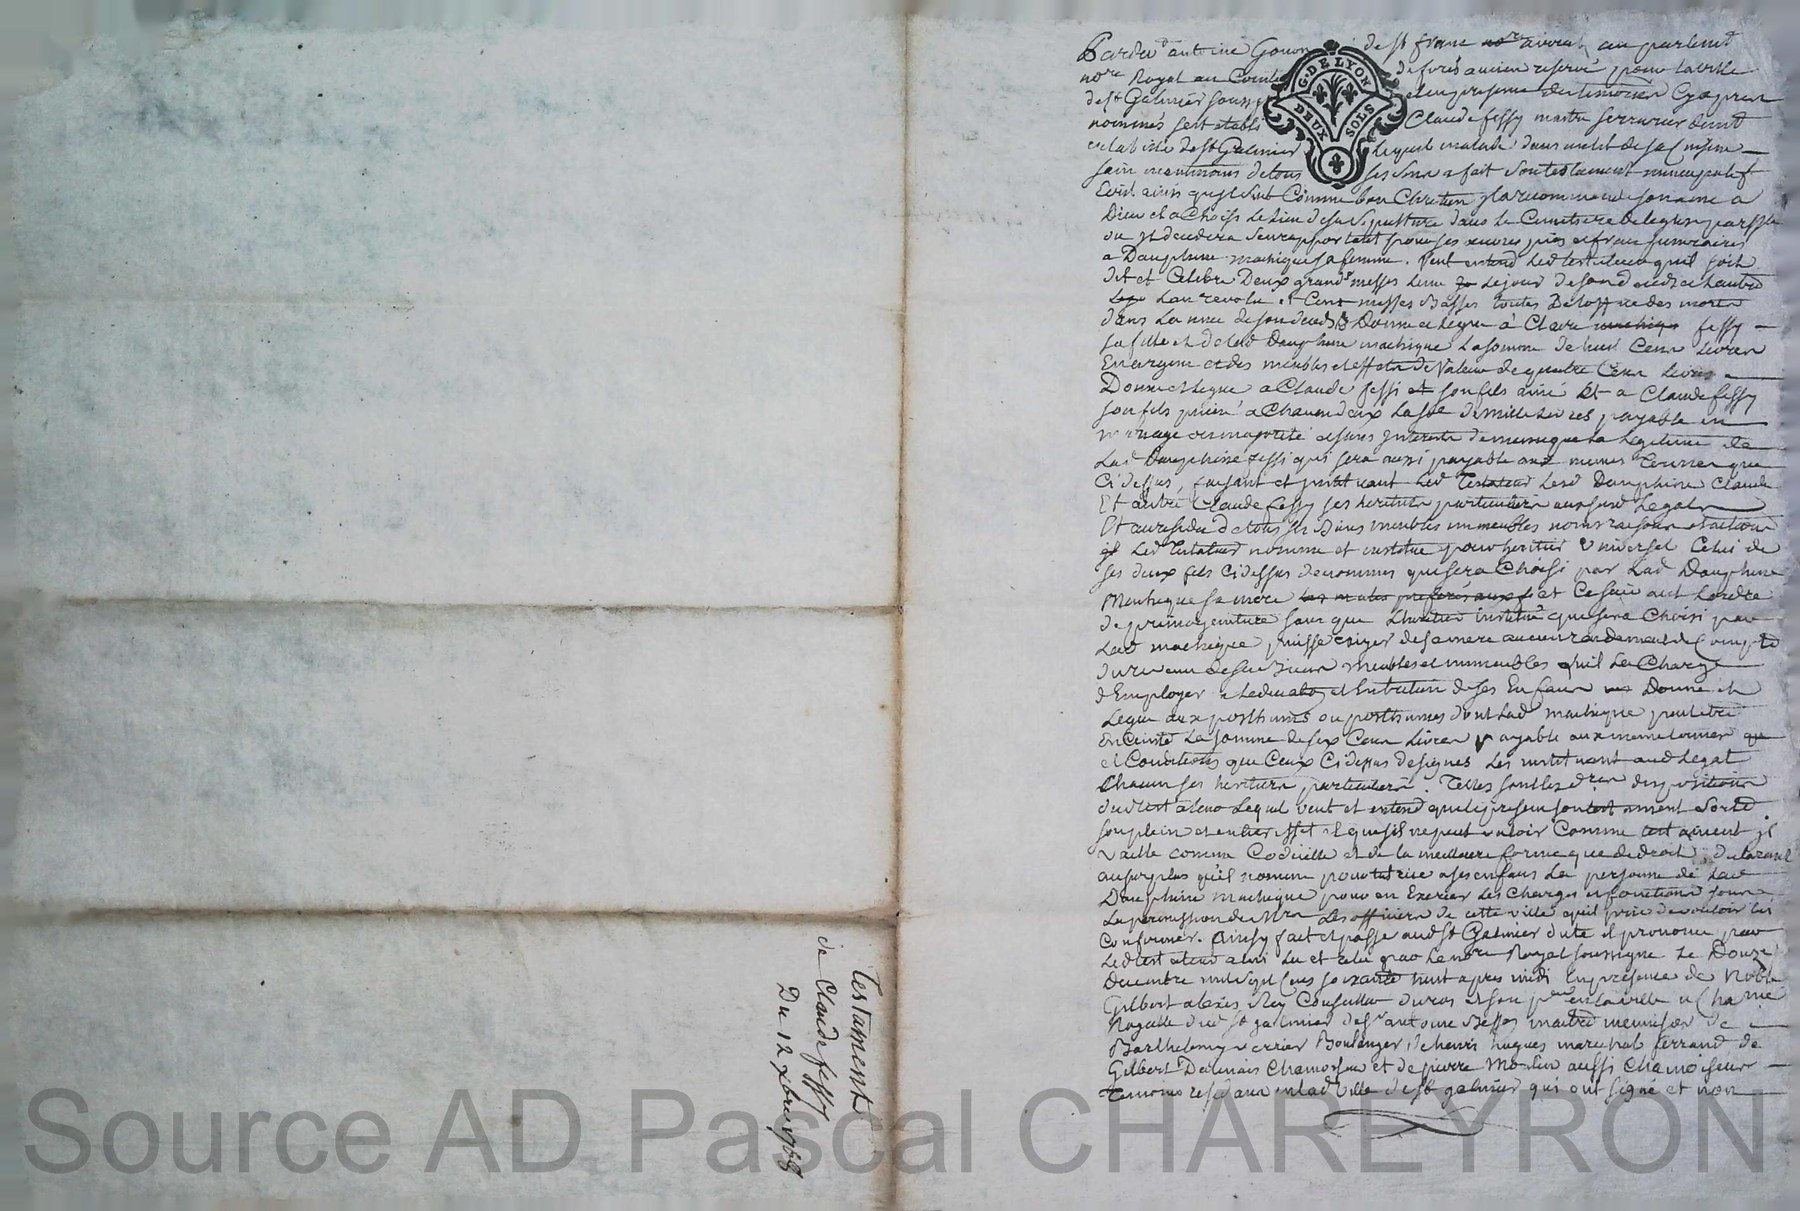 Testament
de Claude fessy
Du 12 xbre 1768
Pardev.t antoine de st franc avocat au parlem.t
no.re Royal au Comté de forés ancien reservé pour la ville
de st Galmier et en presence des temoins Cy apres
nommés s'est etabli Claude fessy maitre serrurier demt
en la ville de st Galmier lequel malade dans un lit de sa Cuisine
sain neanmoins de tous ses sens a fait son testament nuncupatif
Ecrit ainsi quil suit Comme bon Chretien il a recommandé son ame a
Dieu et a Choisi le lieu de sa Sepulture dans le Cimetiere de leglise parssle
ou il decedera s'en rapportant pour ses œuvres pies et frais funeraires
a Dauphine machique sa femme. Veut entend led testateur quil soit
dit et Celebré Deux grandes messes lune le jour de son decés et lautre
lan revolu et Cent messes Basses toutes De loffice des morts
dans lannée de son deces Donne et legue à Claire fessy
sa fille et de lad Dauphine machique la somme de huit Cens livres
En argent et des meubles et effets de Valeur de quatre Cens livres
Donne et legue a Claude fessi son fils ainé Et a Claude fessy
son fils puiné a Chacun deux la so.e de mille livres payable en
mariage ou majorité et sans Interets de meme que la legitime de
Lad Dauphine fessi qui sera aussi payable aux memes termes que
Ci dessus, faisant et instituant led Testateur lesd Dauphine Claude
Et autre Claude fessy ses heritiers particuliers aux susd legats
Et au residu de tous ses Biens meubles immeubles noms raisons et actions
led Testateur nomme et institue pour heritier Universel Celui de
ses deux fils Ci dessus denommés qui sera Choisi par Lad Dauphine
Machique sa mere les males preferés aux f et Ce sans avoir Lordre
de primogeniture sans que Lheritier institué qui sera Choisi par
Lad machique puisse exiger de sa mere aucun rendement de Compte
du revenu de ses Biens Meubles et immeubles quil la Charge
dEmployer a Leducation et Entretien de ses Enfans Donne et
Legue aux posthumes ou posthumes dont Lad machique peut etre
EnCeinte La somme de six Cens Livres payable aux meme termes
et Conditions que Ceux Ci dessus designés Les instituant aud Legat
Chacun ses heritiers particuliers. Telles sont les d.res dispositions
dud testateur Lequel veut et entend que le present son testament sorte
son plein et entier effet et que sil ne peut valoir Comme testament il
vaille comme Codicille et de la meilleure forme que de droit, declarant
au surplus quil nomme pour tutrice a ses enfans La personne de Lad
Dauphine machique pour en Exercer Les Charges et fonctions sous
La permission de Mrs Les officiers de cette ville quil prie de vouloir lui
Confirmer. Ainsy fait et passé aud st Galmier dicté et prononcé par
Led testateur a lui Lu et relu par Le no.re Royal soussigné Le Douze
decembre mil sept Cens soixante huit apres midi En présence de Noble
Gilbert alexis Rey Conseiller du roi et son p.eur en la ville et Chatnie
Royalle dud st galmier de s.r antoine maitre menuisier de
Barthelemy verrier Boulanger, de henri hugues marechal ferrand de
Gilbert Chamoiseur et de pierre Molin aussi Chamoiseur
Temoins residans en lad Ville de st galmier qui ont signé et non
G. DE LYON
DEUX SOLS
Source AD Pascal CHAREYRON